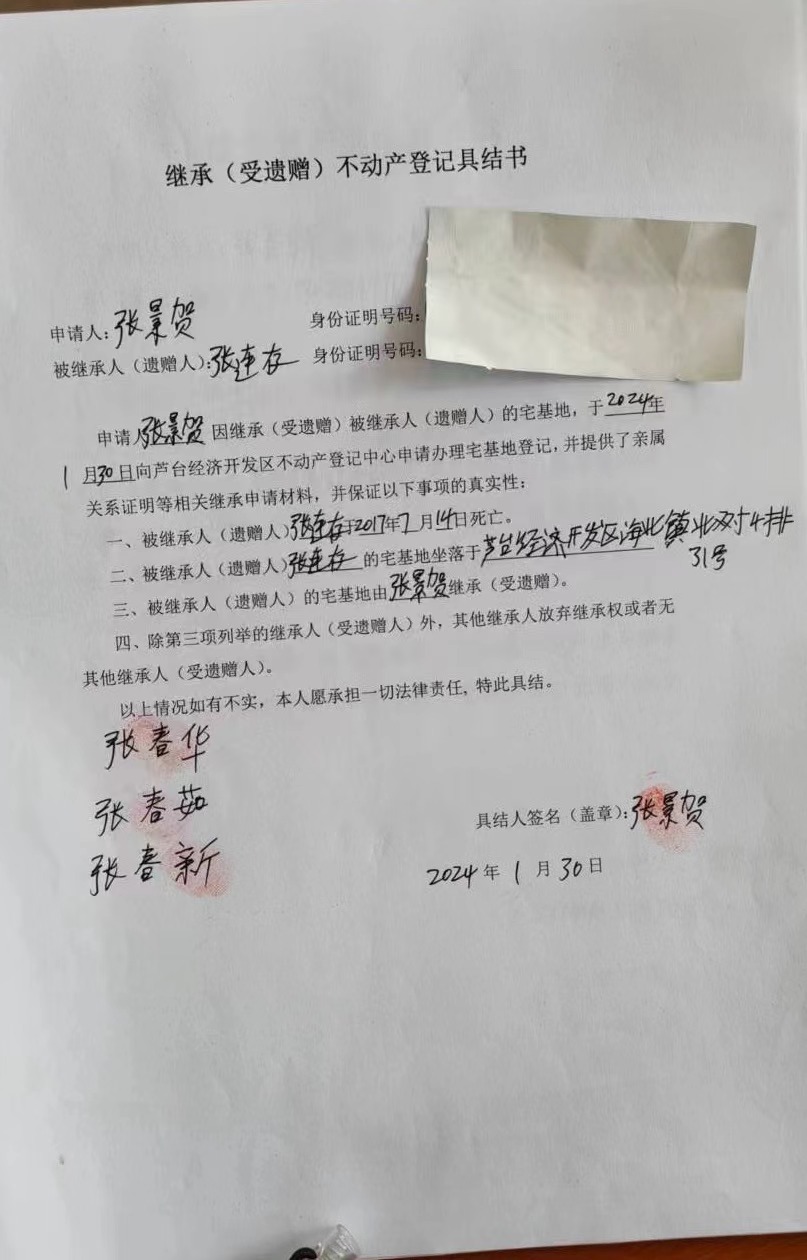 继承（受遗赠）不动产登记具结书
申请人:张景贺 身份证明号码:
被继承人（遗赠人）:张连存 身份证明号码:
申请人张景贺因继承（受遗赠）被继承人（遗赠人）的宅基地，于2024年
1月30日向芦台经济开发区不动产登记中心申请办理宅基地登记,并提供了亲属
关系证明等相关继承申请材料，并保证以下事项的真实性：
一、被继承人（遗赠人）张连存于2017年7月14日死亡。
二、被继承人（遗赠人）张连存的宅基地坐落于芦台经济开发区海北镇北村4排
31号
三、被继承人（遗赠人）的宅基地由张景贺继承（受遗赠）。
四、除第三项列举的继承人（受遗赠人）外，其他继承人放弃继承权或者无
其他继承人（受遗赠人）。
以上情况如有不实，本人愿承担一切法律责任, 特此具结。
张春华
张春茹
张春新
具结人签名（盖章）:张景贺
2024年1月30日